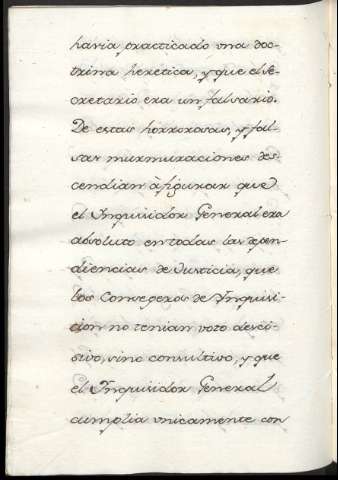 havia practicado vna doc-
trina heretica, y que el Se-
cretario era un falsario.
De estas horrorosas, y fal-
sas murmuraciones des-
cendian à figurar que
el Inquisidor General era
absoluto en todas las depen-
diencias de Justicia, que
los Consegeros de Inquisi-
cion no tenian voto deci-
sivo, sino consultivo, y que
el Inquisidor General
cumplia vnicamente con